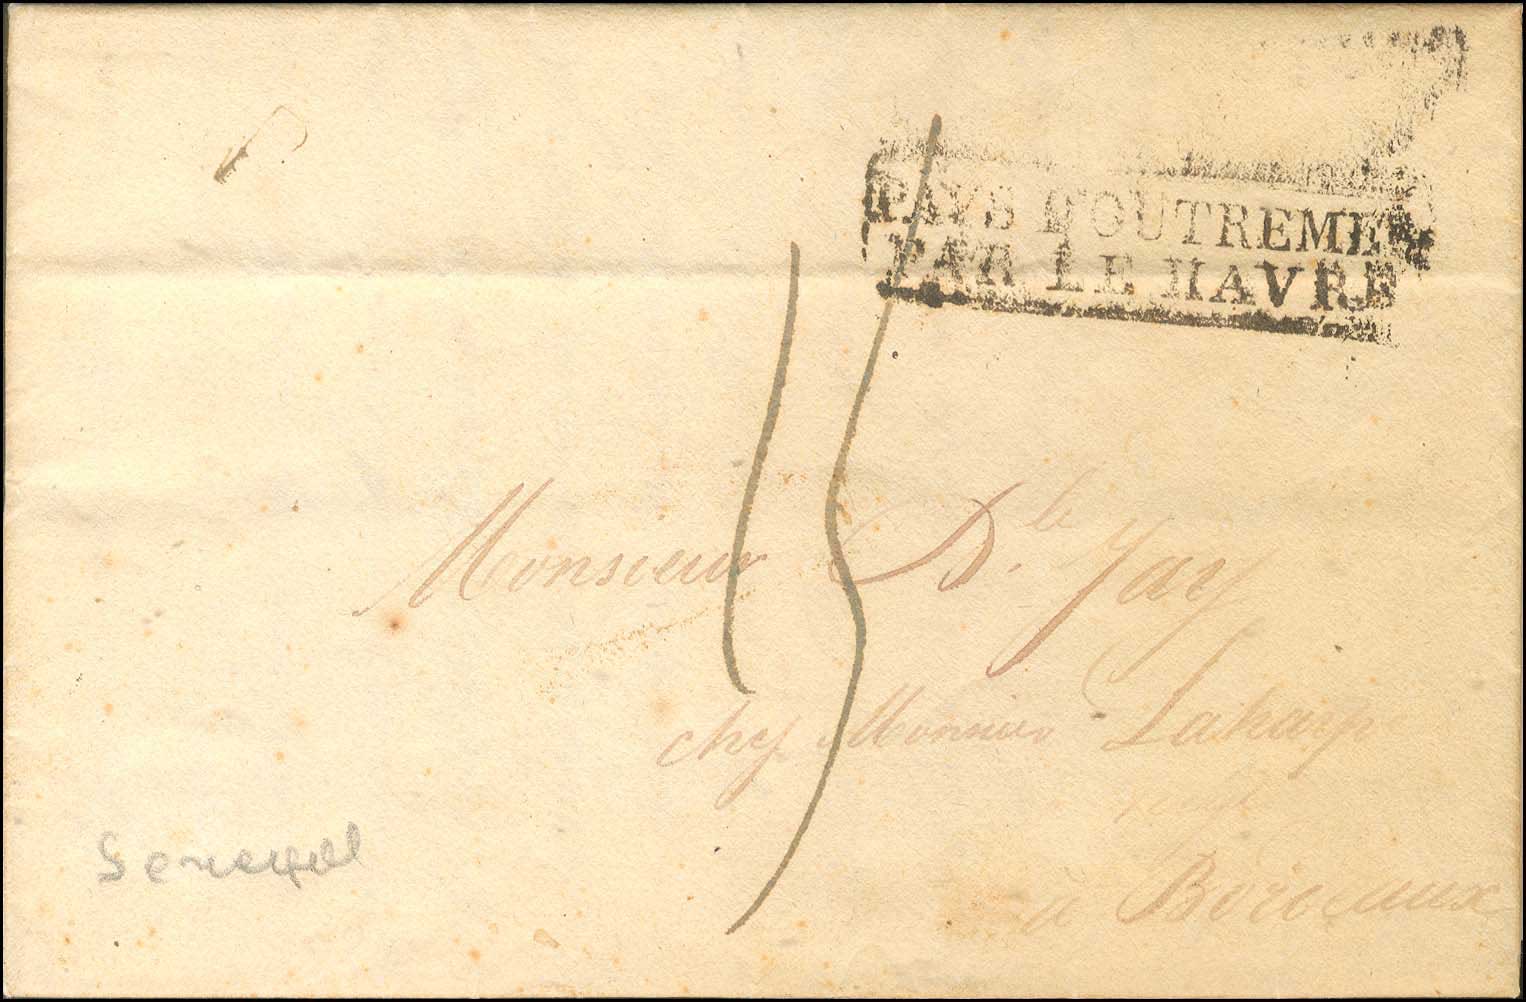 PAYS D'OUTREMER
PAR LE HAVRE
15
Monsieur D.le Jay
chez Monsieur Laharpe
à Bordeaux
Senegal